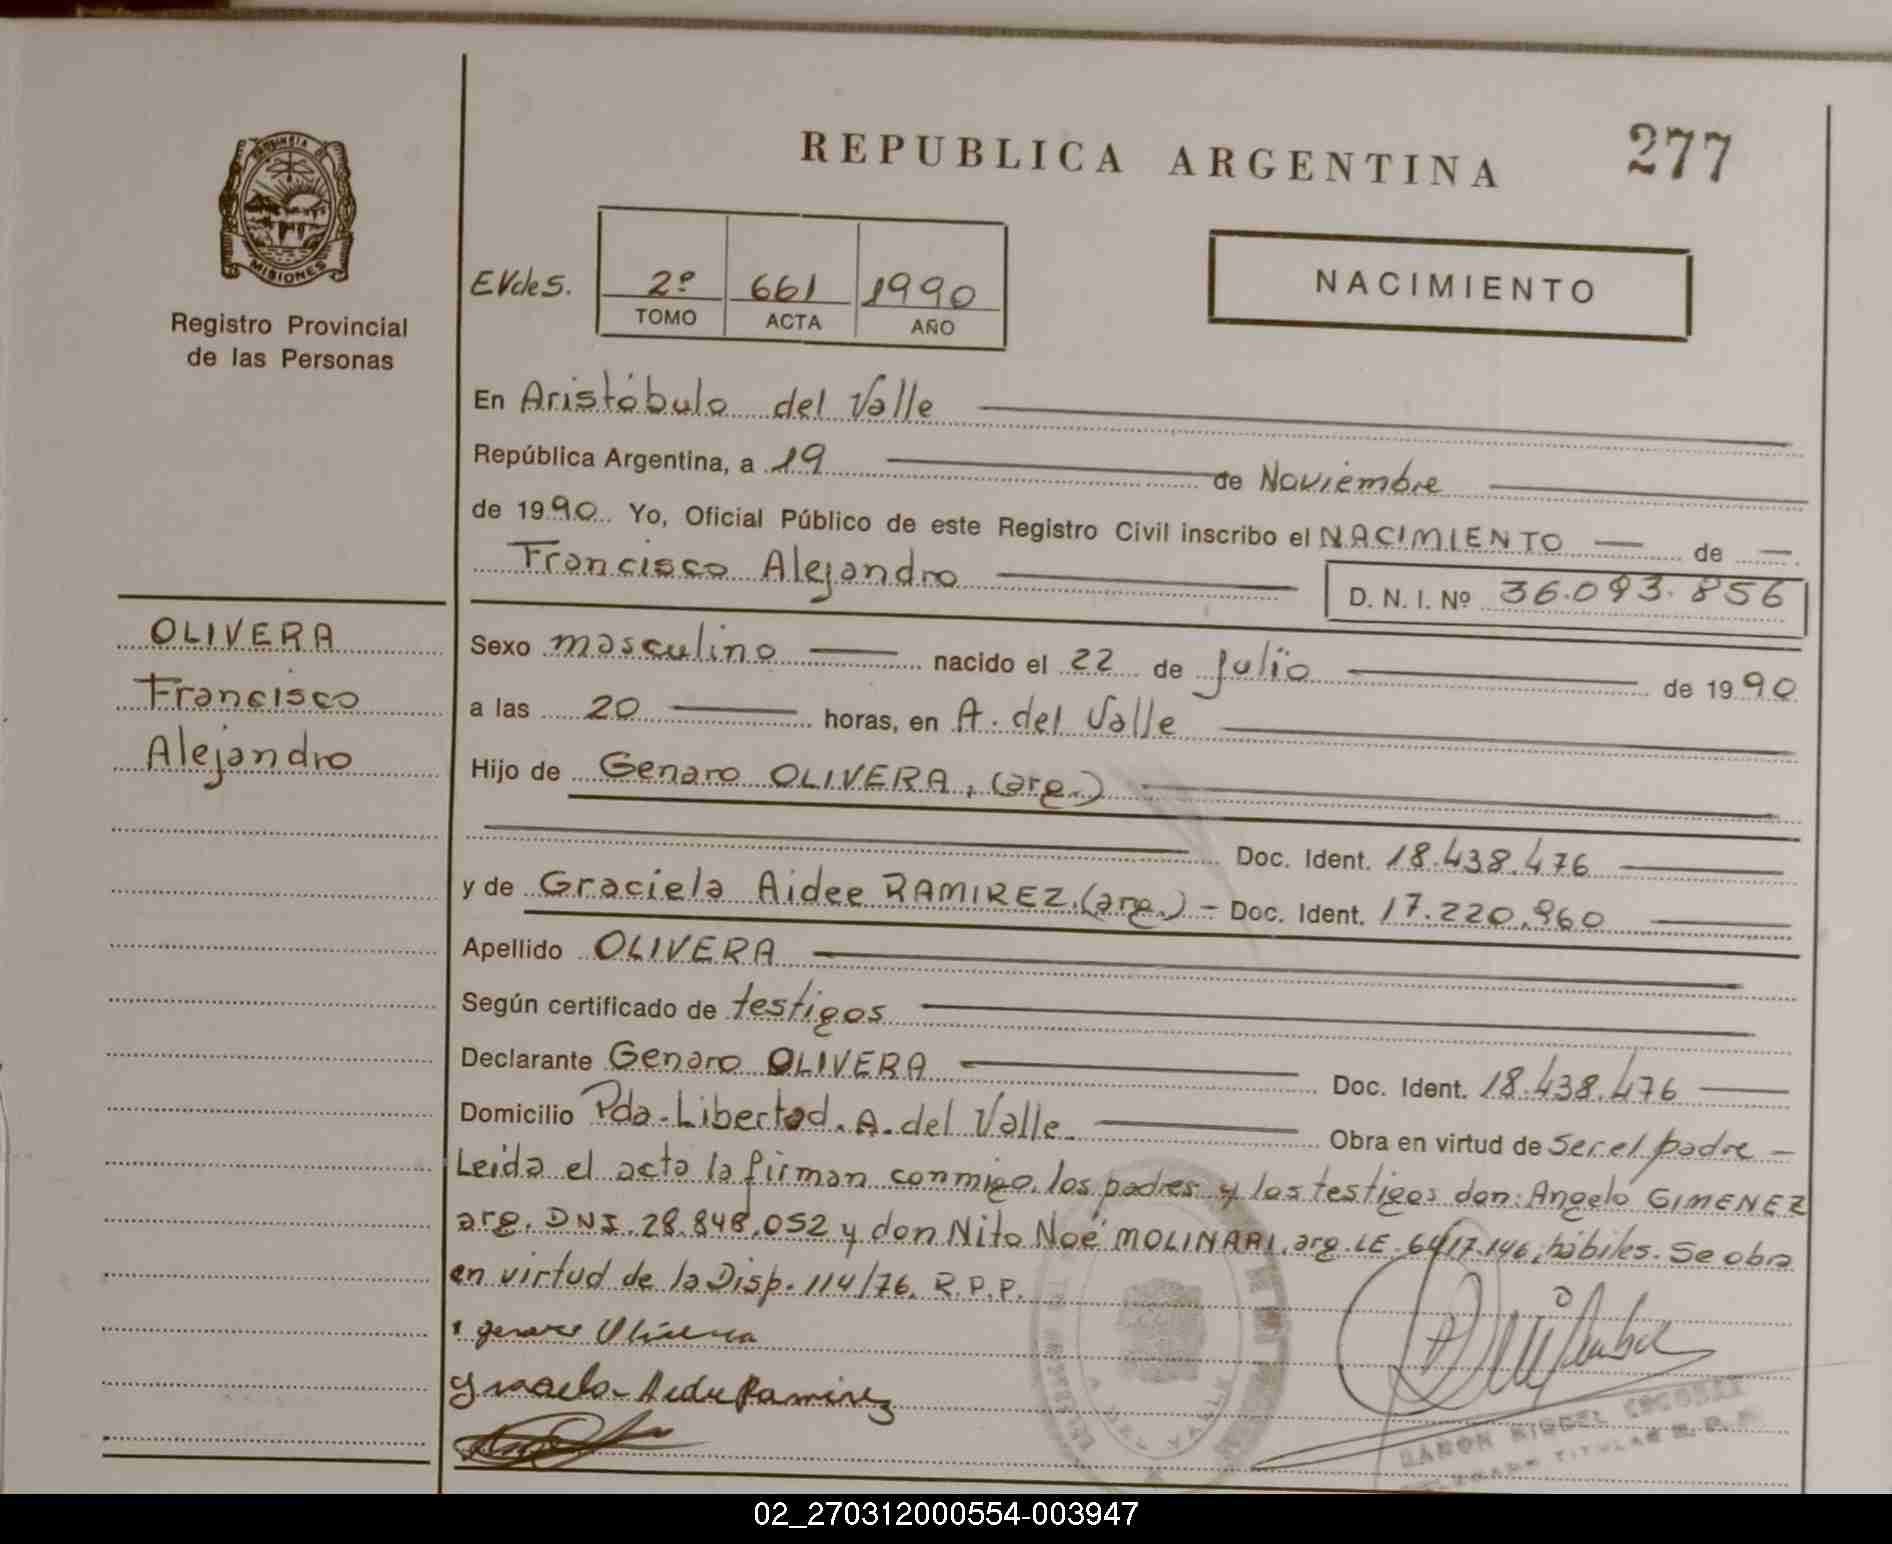 REPUBLICA ARGENTINA
277
PROVINCIA DE
MISIONES
Registro Provincial
de las Personas
EVdeS.
2º 661 1990
TOMO ACTA AÑO
NACIMIENTO
En Aristóbulo del Valle
República Argentina, a 19 de Noviembre
de 1990. Yo, Oficial Público de este Registro Civil inscribo el NACIMIENTO de
Francisco Alejandro D. N. I. Nº 36.093.856
OLIVERA
Francisco
Alejandro
Sexo masculino nacido el 22 de Julio de 1990
a las 20 horas, en A. del Valle
Hijo de Genaro OLIVERA, (arg.)
Doc. Ident. 18.438.476
y de Graciela Aidee RAMIREZ, (arg.) - Doc. Ident. 17.220.960
Apellido OLIVERA
Según certificado de testigos
Declarante Genaro OLIVERA Doc. Ident. 18.438.476
Domicilio Pda. Libertad. A. del Valle. Obra en virtud de ser el padre -
Leida el acta la firman conmigo, los padres y los testigos don: Angelo GIMENEZ
arg. DNI. 28.848.052 y don Nito Noé MOLINARI, arg. LE. 6417.146, hábiles. Se obra
en virtud de la Disp. 114/76. R.P.P.
Olivera
Ramirez
RAMON MIGUEL ESCOBAR
TITULAR R.P.P.
02_270312000554-003947